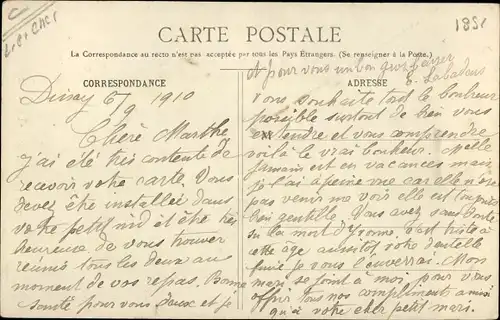 CARTE POSTALE
La Correspondance au recto n'est pas acceptée par tous les Pays Étrangers. (Se renseigner à la Poste.)
1851
CORRESPONDANCE
1910
Chère Marthe
j'ai été très contente de
recevoir votre carte. Vous
devez être installée dans
votre petit nid et être très
heureuse de vous trouver
réunis tous les deux au
moment de vos repas. Bonne
santé pour vous deux et je
ADRESSE
pour vous un bon gros baiser
vous souhaite tout le bonheur
possible surtout de bien vous
entendre et vous comprendre
voilà le vrai bonheur. Melle
est en vacances mais
je l'ai à peine vue car elle n'ose
pas venir me voir elle est toujours
bien gentille. Vous avez sans doute
su la mort d'Yvonne c'est triste à
cette âge aussitôt votre dentelle
finie je vous l'enverrai. Mon
mari se joint à moi pour vous
offrir tous nos compliments ainsi
qu'à votre cher petit mari.